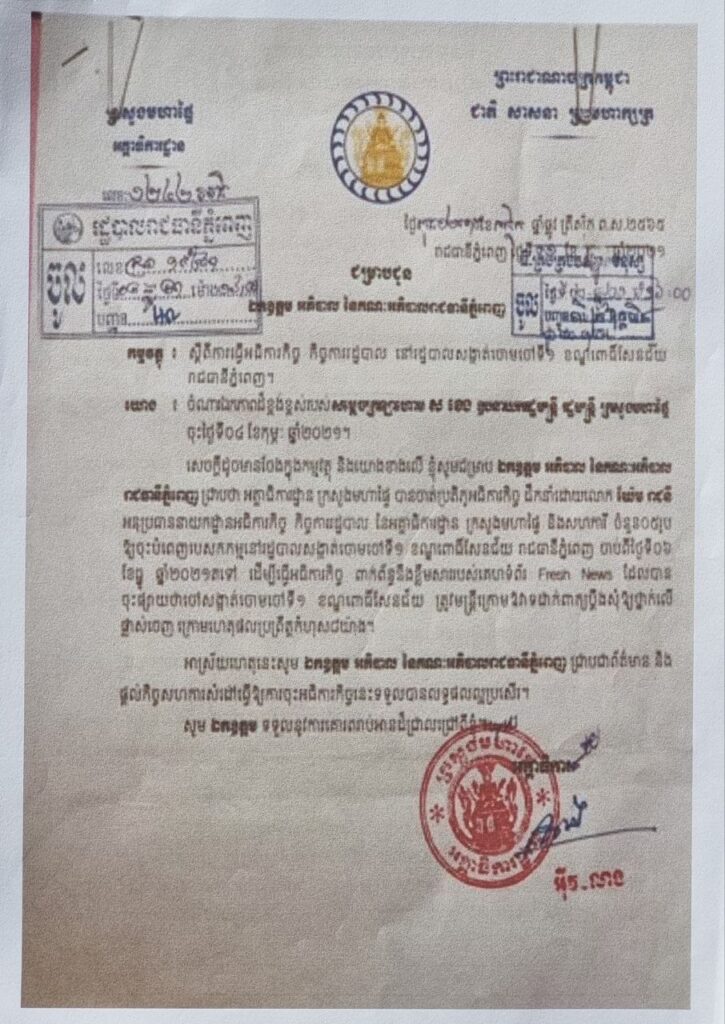 ព្រះរាជាណាចក្រកម្ពុជា
ជាតិ សាសនា ព្រះមហាក្សត្រ
ក្រសួងមហាផ្ទៃ
អគ្គាធិការដ្ឋាន
លេខៈ១២៤២
រដ្ឋបាលរាជធានីភ្នំពេញ
ចូល
លេខ
ថ្ងៃទី
ម៉ោង
បញ្ជូន
ថ្ងៃ ខែ ឆ្នាំឆ្លូវ ត្រីស័ក ព.ស.២៥៦៥
រាជធានីភ្នំពេញ
ចូល
ជម្រាបជូន
ឯកឧត្តម អភិបាល នៃគណៈអភិបាលរាជធានីភ្នំពេញ
កម្មវត្ថុ ៖ ស្តីពីការធ្វើអធិការកិច្ច កិច្ចការរដ្ឋបាល នៅរដ្ឋបាលសង្កាត់ចោមចៅទី១ ខណ្ឌពោធិ៍សែនជ័យ
រាជធានីភ្នំពេញ។
យោង ៖ ចំណារឯកភាពដ៏ខ្ពង់ខ្ពស់របស់សម្តេចក្រឡាហោម ស ខេង ឧបនាយករដ្ឋមន្ត្រី រដ្ឋមន្ត្រី ក្រសួងមហាផ្ទៃ
ចុះថ្ងៃទី០៤ ខែកុម្ភៈ ឆ្នាំ២០២១។
សេចក្តីដូចមានចែងក្នុងកម្មវត្ថុ និងយោងខាងលើ ខ្ញុំសូមជម្រាប ឯកឧត្តម អភិបាល នៃគណៈអភិបាល
រាជធានីភ្នំពេញ ជ្រាបថា អគ្គាធិការដ្ឋាន ក្រសួងមហាផ្ទៃ បានចាត់ប្រតិភូអធិការកិច្ច ដឹកនាំដោយលោក ឃឹម រាជនី
អនុប្រធាននាយកដ្ឋានអធិការកិច្ច កិច្ចការរដ្ឋបាល នៃអគ្គាធិការដ្ឋាន ក្រសួងមហាផ្ទៃ និងសហការី ចំនួន០៥រូប
ឱ្យចុះបំពេញបេសកកម្មនៅរដ្ឋបាលសង្កាត់ចោមចៅទី១ ខណ្ឌពោធិ៍សែនជ័យ រាជធានីភ្នំពេញ ចាប់ពីថ្ងៃទី០៦
ខែធ្នូ ឆ្នាំ២០២១តទៅ ដើម្បីធ្វើអធិការកិច្ច ពាក់ព័ន្ធនឹងខ្លឹមសាររបស់គេហទំព័រ Fresh News ដែលបាន
ចុះផ្សាយថាចៅសង្កាត់ចោមចៅទី១ ខណ្ឌពោធិ៍សែនជ័យ ត្រូវមន្ត្រីក្រោមឱវាទដាក់ពាក្យប្តឹងសុំឱ្យថ្នាក់លើ
ផ្លាស់ចេញ ក្រោមហេតុផលប្រព្រឹត្តកំហុស៨យ៉ាង។
អាស្រ័យហេតុនេះសូម ឯកឧត្តម អភិបាល នៃគណៈអភិបាលរាជធានីភ្នំពេញ ជ្រាបជាព័ត៌មាន និង
ផ្តល់កិច្ចសហការសំដៅធ្វើឱ្យការចុះអធិការកិច្ចនេះទទួលបានលទ្ធផលល្អប្រសើរ។
សូម ឯកឧត្តម ទទួលនូវការគោរពរាប់អានដ៏ជ្រាលជ្រៅពីខ្ញុំ
អគ្គាធិការ
ក្រសួងមហាផ្ទៃ
អគ្គាធិការដ្ឋាន